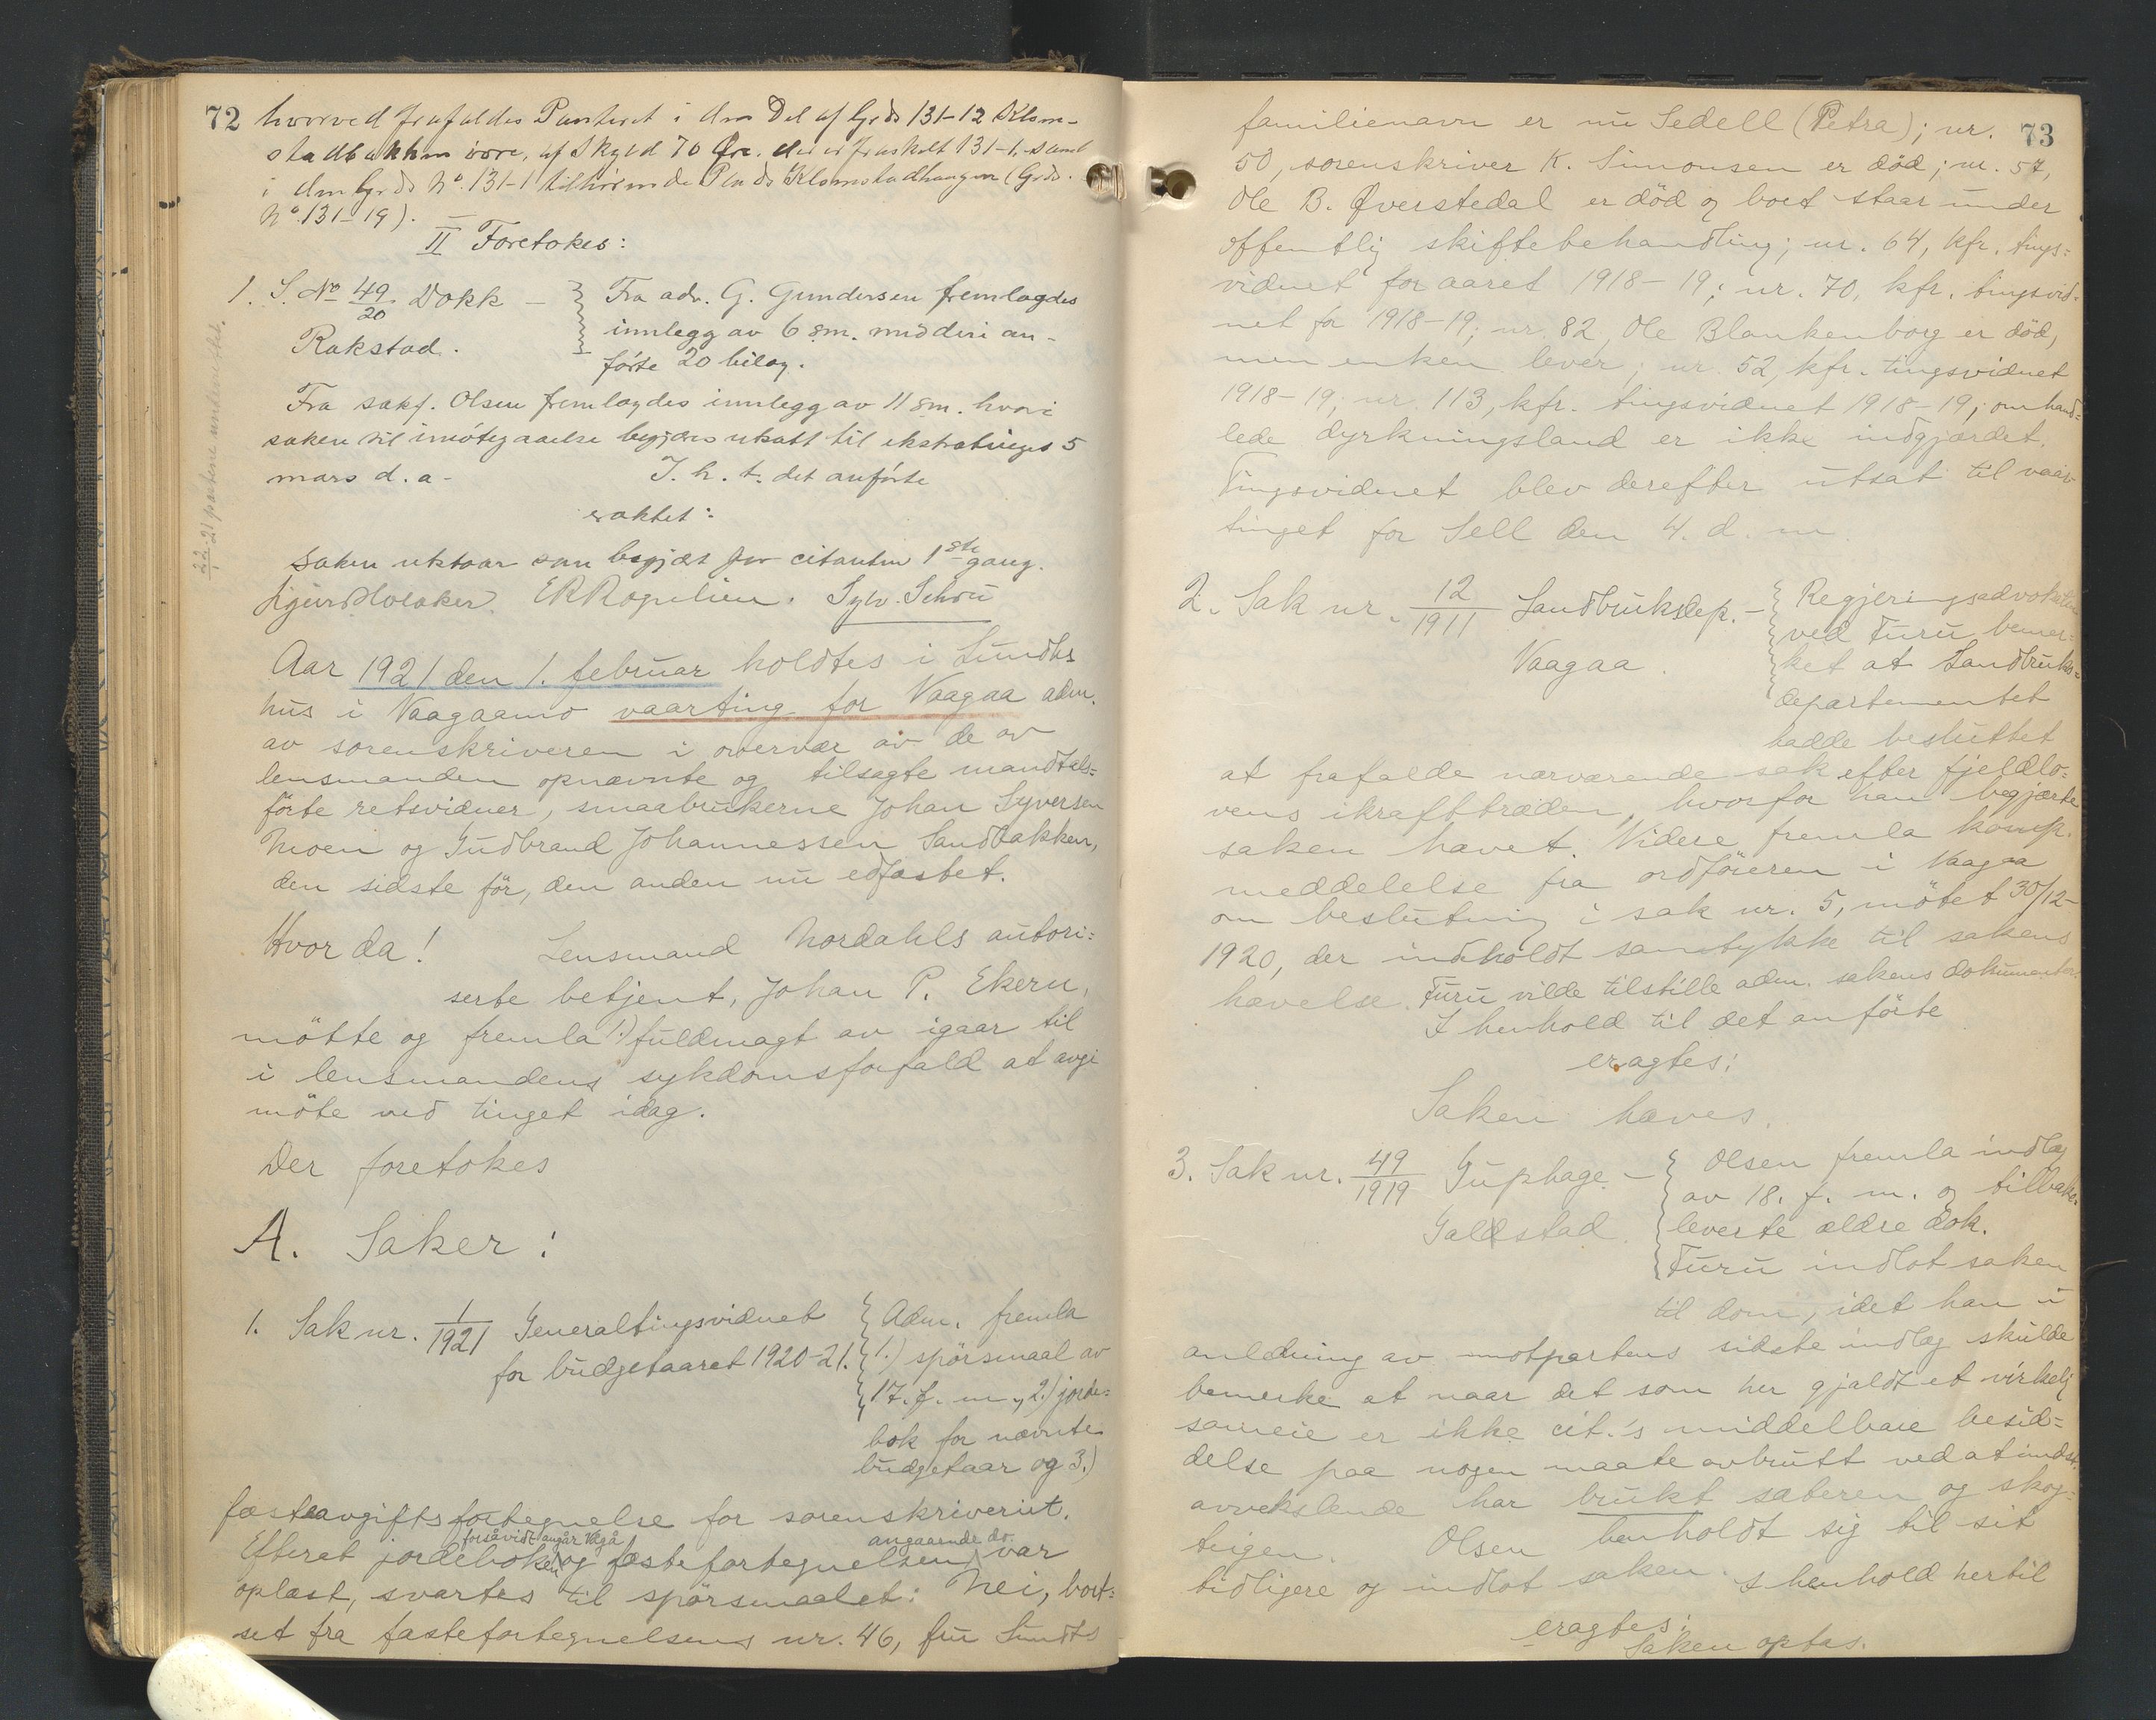 72
hvorved frafaldes Panteret i den Del af Grds 131-12 Klom-
stadbakken övre, af Skyld 70 Øre, der er fraskilt 131-1, samt
i den Grds No. 131-1 tilhörende Plads Klomstadhaugen (Grds.
No. 131-19).
II Foretokes:
1. S. No 49/20 Dokk —
Rakstad.
Fra adv. G. Gundersen fremlagdes
innlegg av 6 sm. med deri an-
förte 20 bilag.
Fra sakf. Olsen fremlagdes innlegg av 11 sm. hvori
saken til imötegaaelse begjæres utsatt til ekstratinget 5
mars d. a. I. h. t. det anförte
eraktet:
Saken utstaar som begjært for citanten 1ste gang.
Sylv. Schou
22/2-21 partene underrettet.
Aar 1921 den 1. februar holdtes i Sundts
hus i Vaagaamo vaarting for Vaagaa adm.
av sorenskriveren i overvær av de av
lensmanden opnævnte og tilsagte mandtals=
förte retsvidner, smaabrukerne Johan Syversen
Moen og Gudbrand Johannessen Sandbakken,
den sidste för, den anden nu edfæstet.
Hvor da! Lensmand Nordahls autori=
serte betjent, Johan P. Ekern,
mötte og fremla 1.) fuldmagt av igaar til
i lensmandens sykdomsforfald at avgi
möte ved tinget idag.
Der foretokes
A. Saker:
1. Sak nr. 1/1921 Generaltingsvidnet
for budgetaaret 1920-21.
Adm. fremla
1.) spörsmaal av
17. f. m., 2.) jorde=
bok for nævnte
budgetaar og 3.)
fæsteavgiftsfortegnelse for sorenskriveriet.
forsåvidt angår Vågå angaaende do.
Efterat jordeboken og fæstefortegnelsen var
oplæst, svartes til spörsmaalet: Nei, bort=
set fra fæstefortegnelsens nr. 46, fru Sundts
73
familienavn er nu Sedell (Petra); nr.
50, sorenskriver K. Simonsen er död; nr. 57,
Ole B. Øverstedal er död og boet staar under
offentlig skiftebehandling; nr. 64, kfr. tings=
vidnet for aaret 1918-19; nr. 70, kfr. tingsvid=
net for 1918-19; nr. 82, Ole Blankenborg er död,
men enken lever; nr. 52, kfr. tingsvidnet
1918-19; nr. 113, kfr. tingsvidnet 1918-19; omhand=
lede dyrkningsland er ikke indgjærdet.
Tingsvidnet blev derefter utsat til vaar=
tinget for Sell den 4. d. m.
2. Sak nr. 12/1911 Landbruksdep. —
Vaagaa.
Regjeringsadvokaten
ved Furu bemer=
ket at Landbruks=
departementet
hadde besluttet
at frafalde nærværende sak efter fjeldlo=
vens ikrafttræden, hvorfor han begjærte
saken hævet. Videre fremla komp.
meddelelse fra ordföreren i Vaagaa
om beslutning i sak nr. 5, mötet 30/12-
1920, der indeholdt samtykke til sakens
hævelse. Furu vilde tilstille adm. sakens dokumenter.
I henhold til det anförte
eragtes:
Saken hæves.
3. Sak nr. 49/1919 Guphage —
Galdstad.
Olsen fremla indlæg
av 18. f. m. og tilbake=
leverte ældre dok.
Furu indlot saken
til dom, idet han i
anledning av motpartens sidste indlæg skulde
bemerke at naar det som her gjaldt et virkelig
sameie er ikke cit.'s middelbare besid=
delse paa nogen maate avbrutt ved at indst.
avvekslende har brukt sæteren og skog=
teigen. Olsen henholdt sig til sit
tidligere og indlot saken. I henhold hertil
eragtes:
Saken optas.